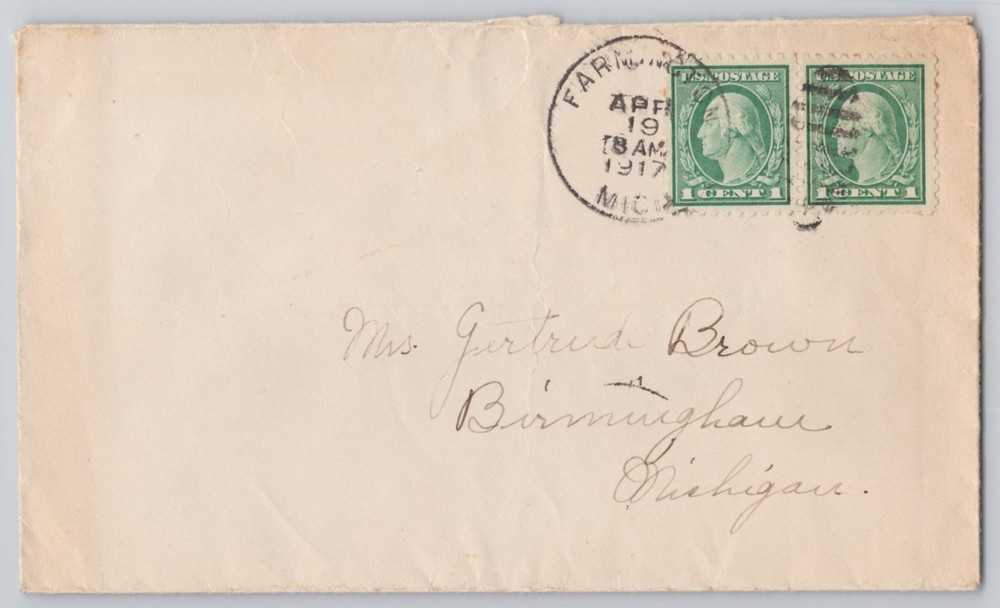 FARMINGTON
APR
19
8 AM
1917
MICH
U.S. POSTAGE
1 CENT 1
U.S. POSTAGE
1 CENT 1
Mrs. Gertrude Brown
Birmingham
Michigan.